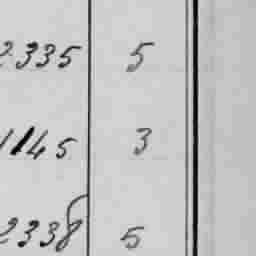 2335 5
1145 3
2338 5